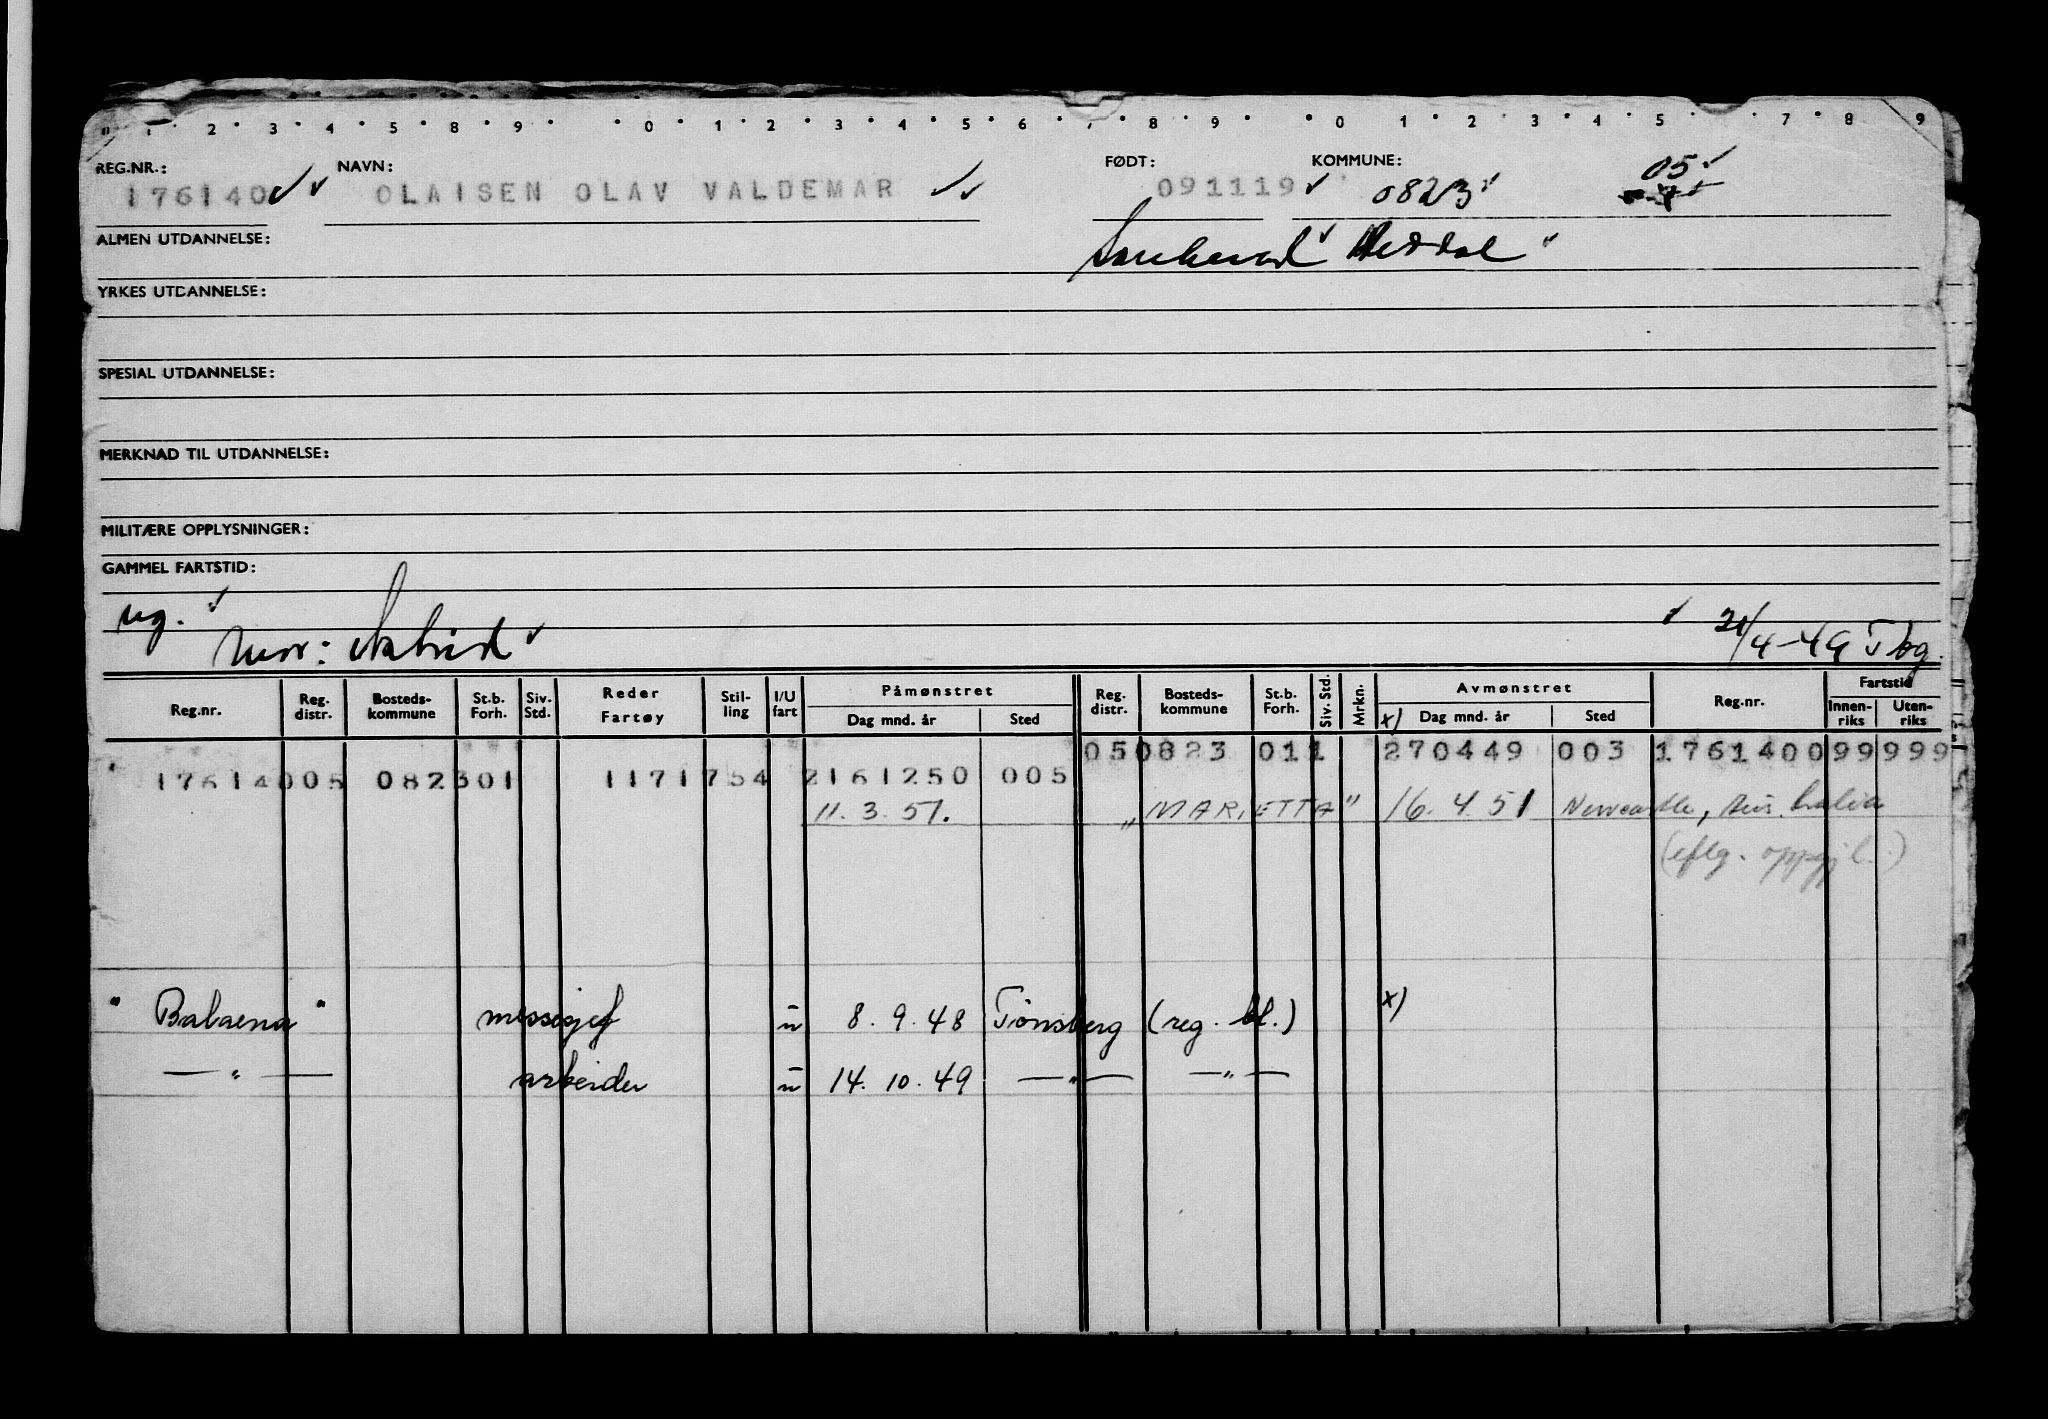 0 1 2 3 4 5 8 9 0 1 2 3 4 5 6 7 8 9 0 1 2 3 4 5 7 8 9
REG.NR.: NAVN: FØDT: KOMMUNE: 05
176140 OLAISEN OLAV VALDEMAR 091119 0823
ALMEN UTDANNELSE: Heddal
YRKES UTDANNELSE:
SPESIAL UTDANNELSE:
MERKNAD TIL UTDANNELSE:
MILITÆRE OPPLYSNINGER:
GAMMEL FARTSTID:
ug.
mor: Astrid 21/4-49 Tbg.
Reg.nr. Reg. distr. Bosteds-kommune St.b. Forh. Siv. Std. Reder Fartøy Stil-ling I/U fart Påmønstret Dag mnd. år Sted Reg. distr. Bosteds-kommune St.b. Forh. Siv. Std. Mrkn. Avmønstret x) Dag mnd. år Sted Reg.nr. Fartstid Innen-riks Uten-riks
050823 011 270449 003 17614009 99999
17614005 082301 1171754 2161250 005
11. 3. 51. "MARIETTA" 16. 4. 51 Newcastle, Australia
(eflg. oppgj. )
" Balaena " messegj u 8. 9. 48 Tønsberg (reg. bl.) x)
— " — arbeider u 14. 10. 49 — " — — " —